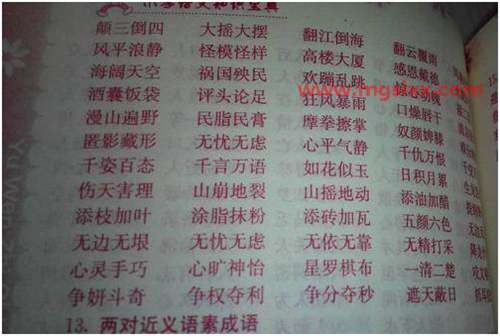 小学语文知识宝典
颠三倒四 大摇大摆 翻江倒海 翻云覆雨
风平浪静 怪模怪样 高楼大厦 感恩戴德
海阔天空 祸国殃民 欢蹦乱跳
酒囊饭袋 评头论足 狂风暴雨 口燥唇干
漫山遍野 民脂民膏 摩拳擦掌 奴颜婢膝
匿影藏形 无忧无虑 心平气静 千仇万恨
千姿百态 千言万语 如花似玉 日积月累
伤天害理 山崩地裂 山摇地动 添油加醋
添枝加叶 涂脂抹粉 添砖加瓦 五颜六色
无边无垠 无忧无虑 无依无靠 无精打采
心灵手巧 心旷神怡 星罗棋布 一清二楚
争妍斗奇 争权夺利 争分夺秒 遮天蔽日
13. 两对近义语素成语